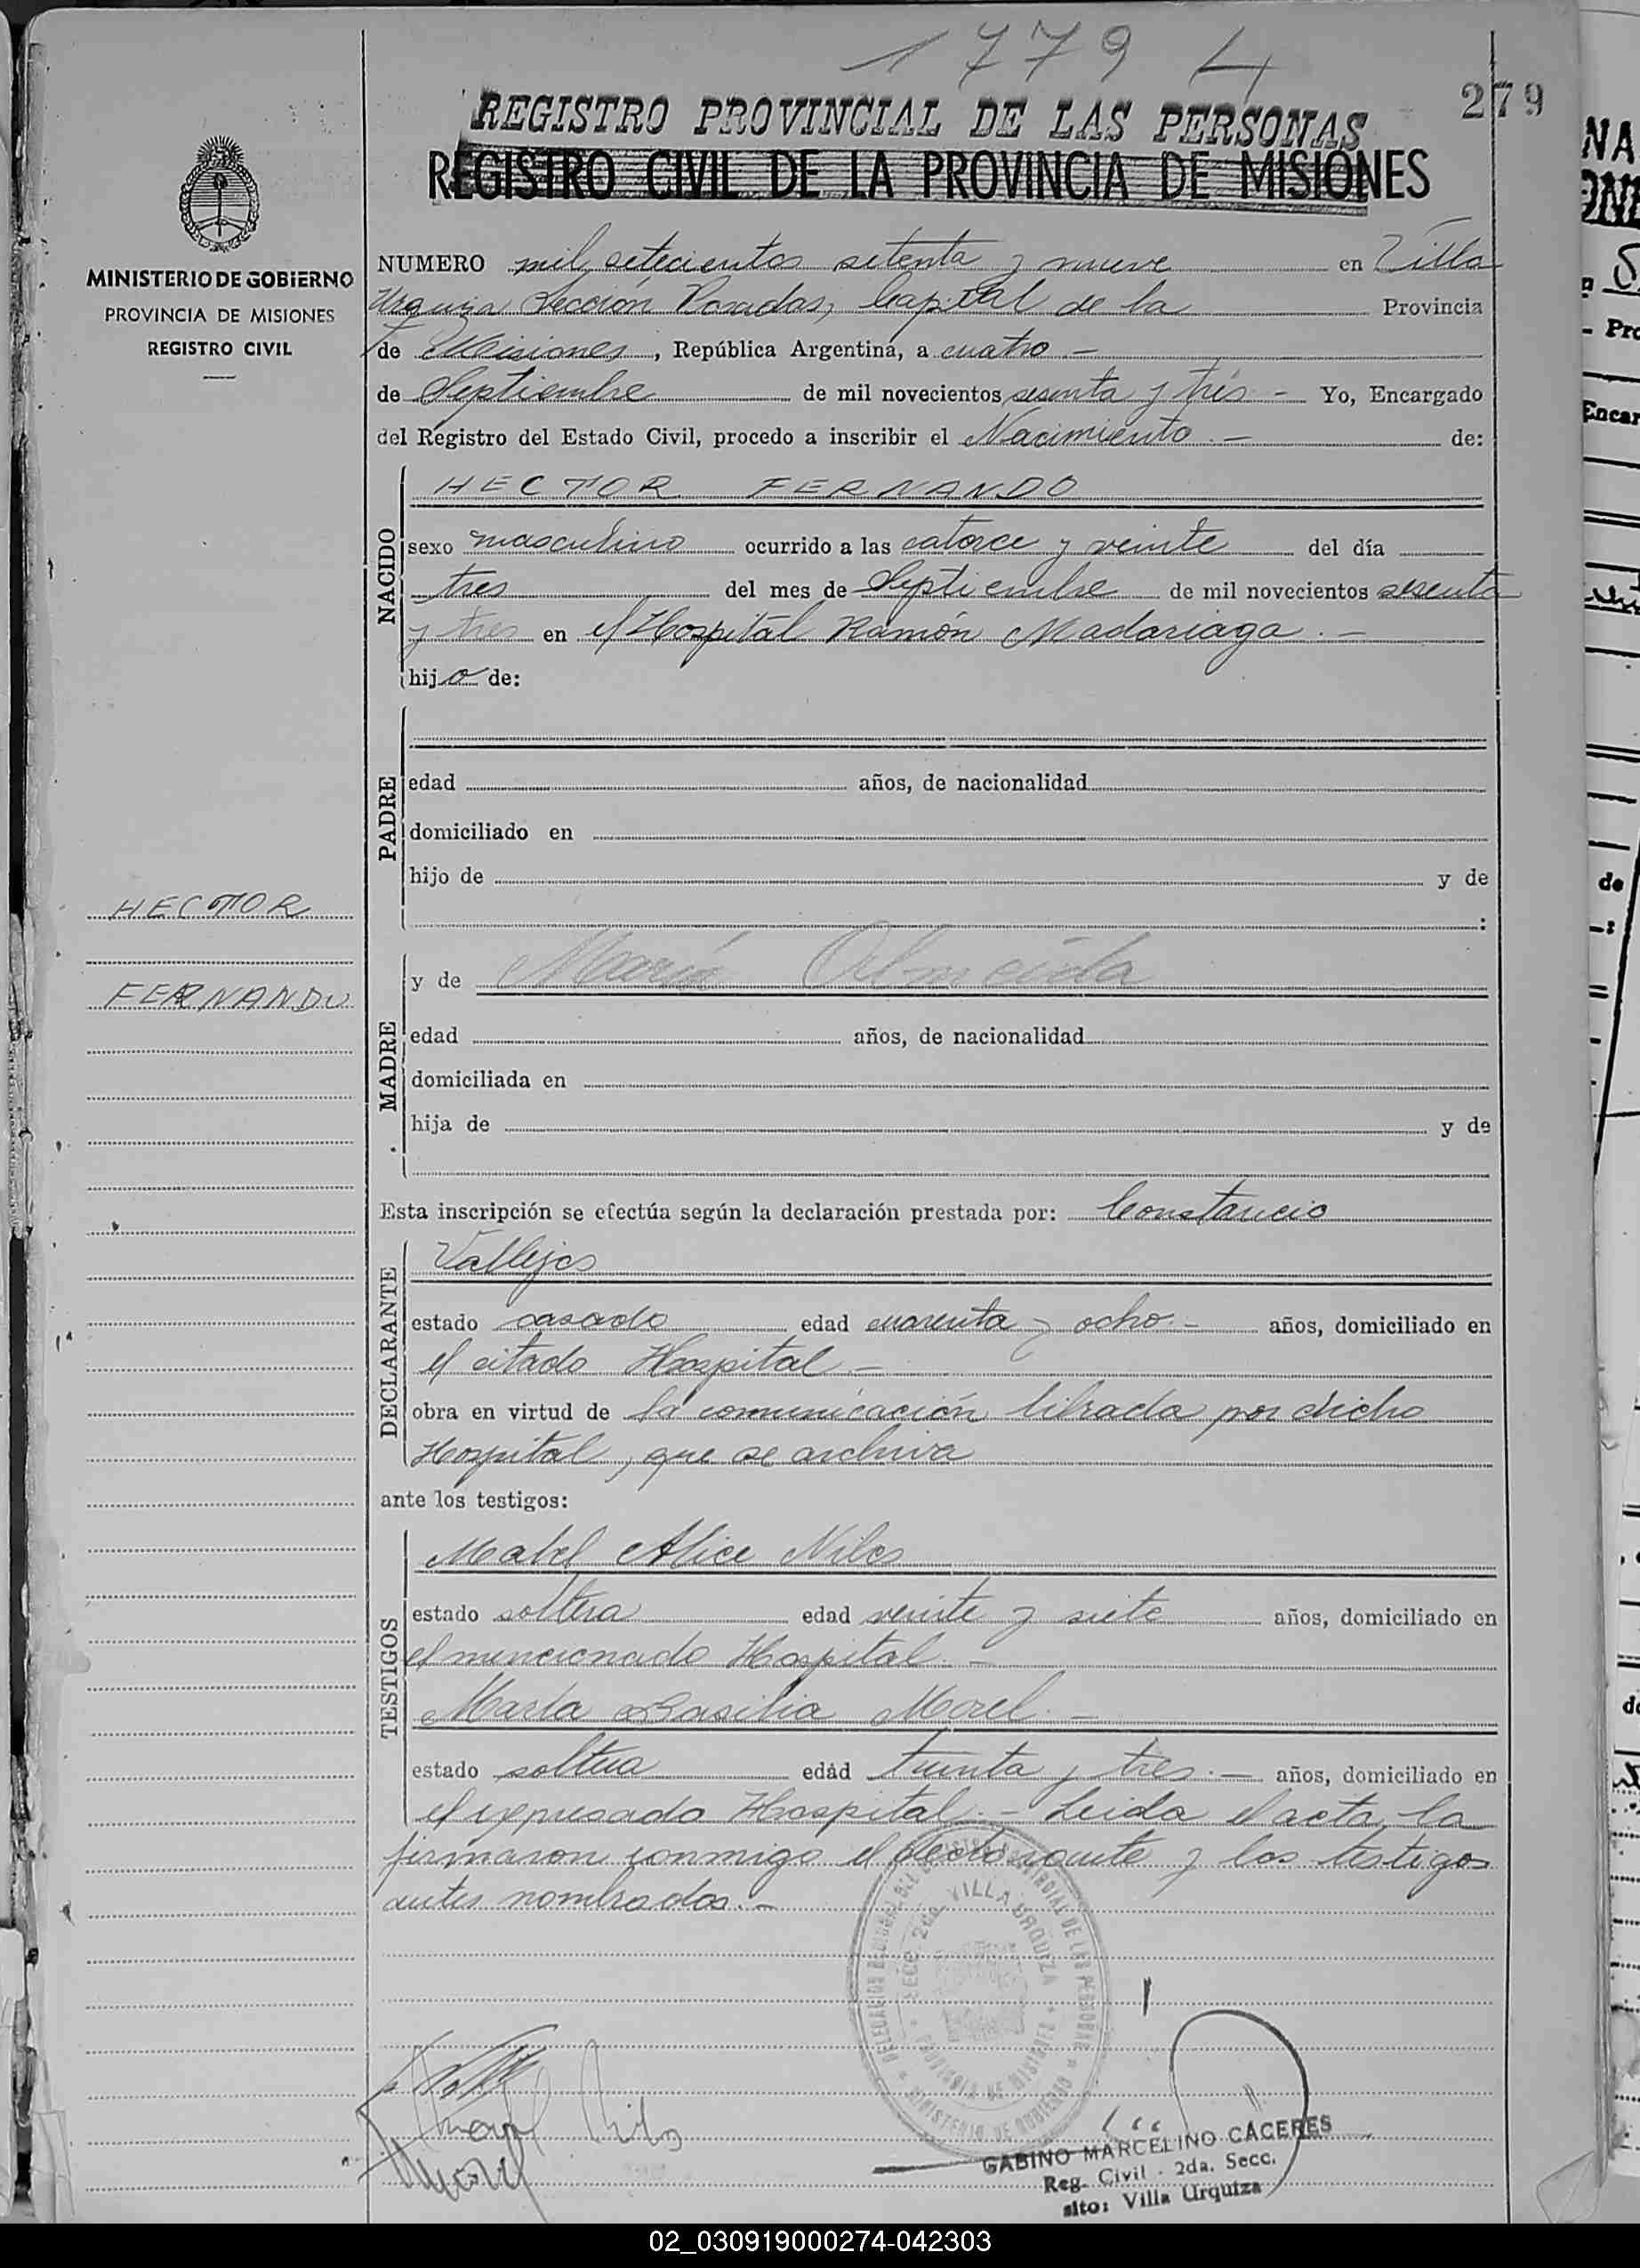 1779 L
279
REGISTRO PROVINCIAL DE LAS PERSONAS
REGISTRO CIVIL DE LA PROVINCIA DE MISIONES
MINISTERIO DE GOBIERNO
PROVINCIA DE MISIONES
REGISTRO CIVIL
NUMERO mil setecientos setenta y nueve en Villa
Urquiza Sección Posadas, Capital de la Provincia
de Misiones, República Argentina, a cuatro.-
de Septiembre de mil novecientos sesenta y tres.- Yo, Encargado
del Registro del Estado Civil, procedo a inscribir el Nacimiento.- de:
NACIDO
HECTOR FERNANDO
sexo masculino ocurrido a las catorce y veinte del día
tres del mes de Septiembre de mil novecientos sesenta
y tres en el Hospital Ramón Madariaga.-
hijo de:
PADRE
edad años, de nacionalidad
domiciliado en
hijo de y de
:
HECTOR
FERNANDO
MADRE
y de María Olmeida
edad años, de nacionalidad
domiciliada en
hija de y de
Esta inscripción se efectúa según la declaración prestada por: Constancio
DECLARANTE
Vallejos
estado casado edad cuarenta y ocho.- años, domiciliado en
el citado Hospital.-
obra en virtud de la comunicación librada por dicho
Hospital, que se archiva
ante los testigos:
TESTIGOS
Mabel Alice Niles
estado soltera edad veinte y siete años, domiciliado en
el mencionado Hospital.-
Marta Basilia Morel.-
estado soltera edad treinta y tres.- años, domiciliado en
el expresado Hospital.- Leida el acta, la
firmaron conmigo el declarante y los testigos
antes nombrados.-
SECC. 2da. VILLA URQUIZA
PROVINCIA DE MISIONES
MINISTERIO DE GOBIERNO
GABINO MARCELINO CACERES
Reg. Civil - 2da. Secc.
sito: Villa Urquiza
02_030919000274-042303